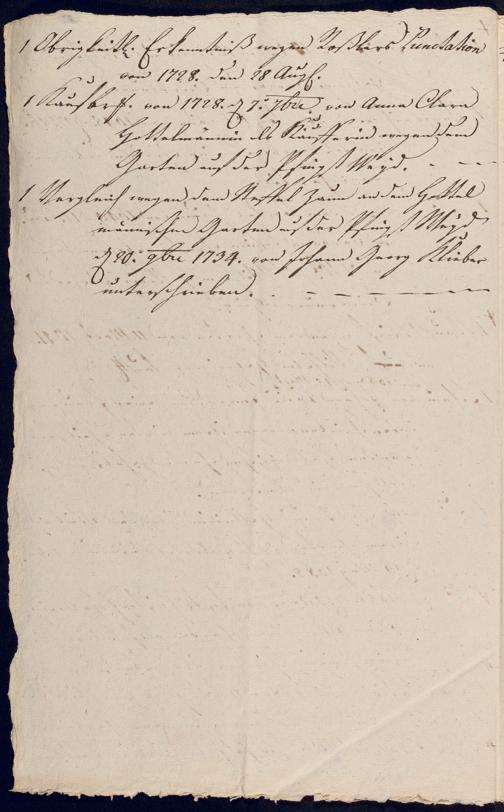 1 Obrigkeitl. Erkenntniß wegen Roßlers Punctation
von 1728. den 28 Aug.
1 Kaufbrf. von 1728. d 2. 7bre. von Anna Clara
Gottelmännin als Käufferin wegen dem
Garten auf der Pfingst Weyd.
1 Vergleich wegen dem Steffel Zaun an dem Gottel
männischen Garten auf der Pfingst Weyd
d 20. 9bre 1734. von Johann Georg Klieber
unterschrieben.